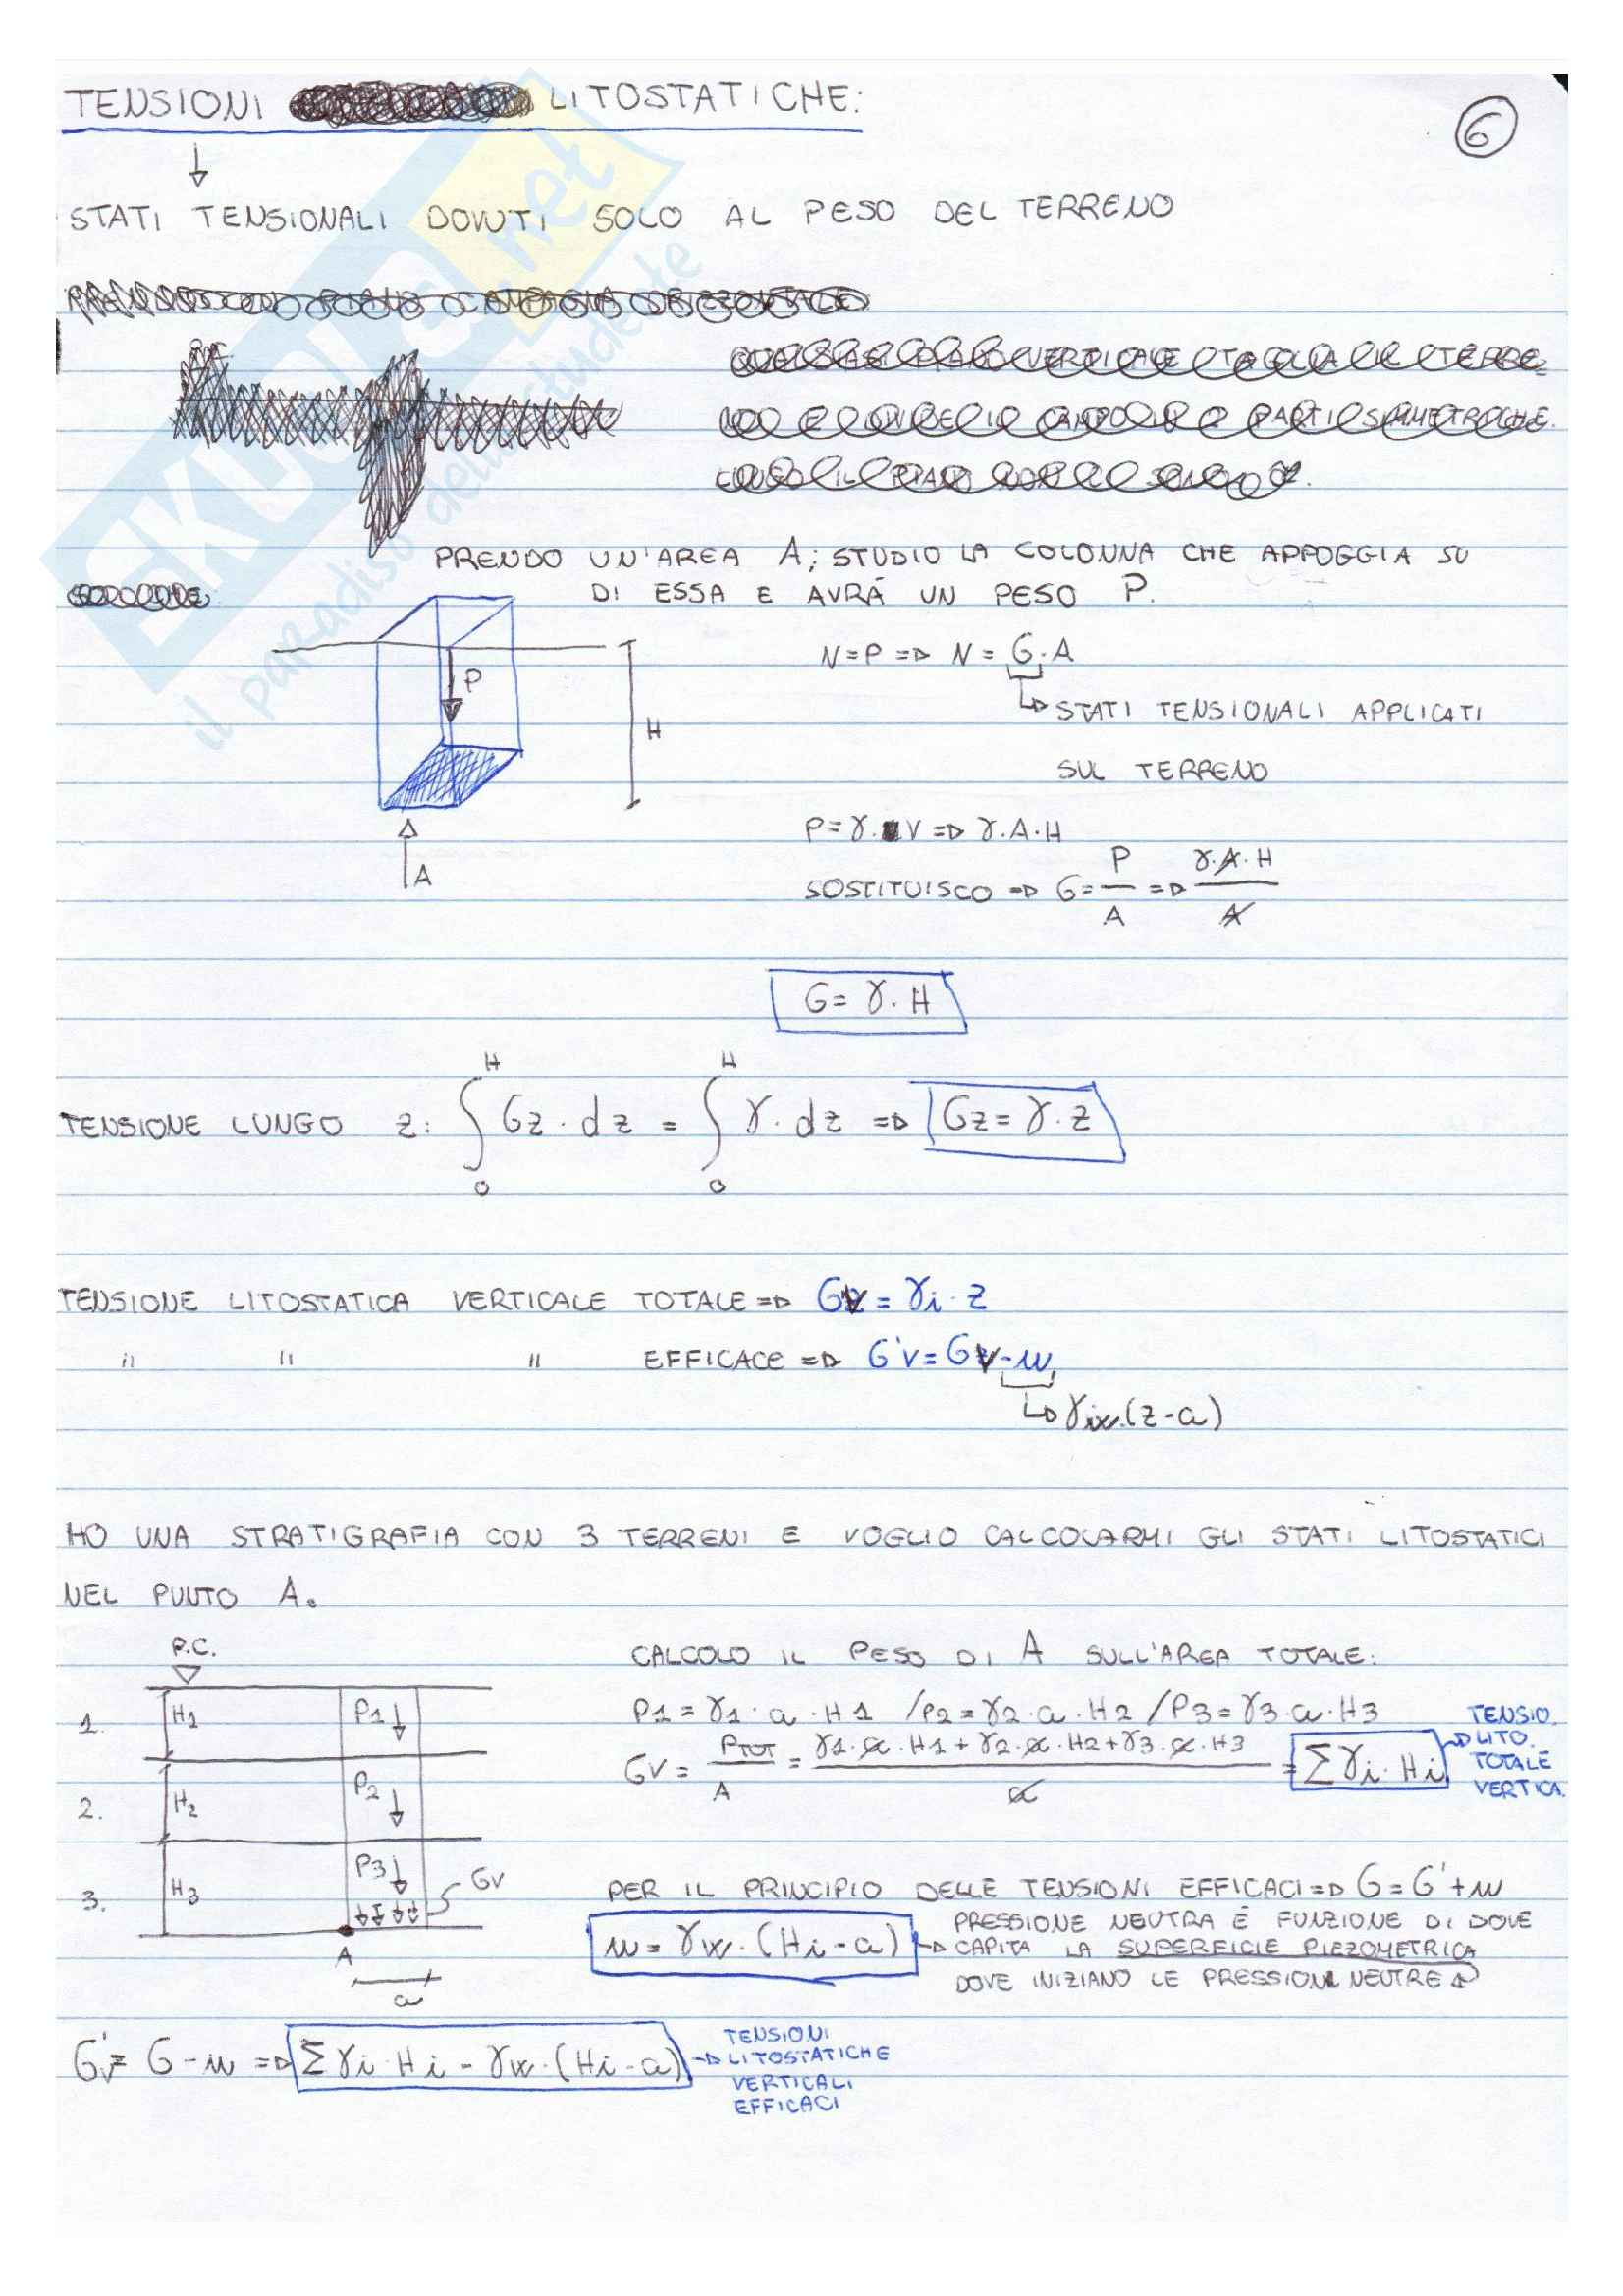 TENSIONI LITOSTATICHE:
6
STATI TENSIONALI DOVUTI SOLO AL PESO DEL TERRENO
PRENDO UN'AREA A; STUDIO LA COLONNA CHE APPOGGIA SU
DI ESSA E AVRÁ UN PESO P.
N=P => N = G·A
P
H
↳ STATI TENSIONALI APPLICATI
SUL TERRENO
A
P=γ·V => γ·A·H
SOSTITUISCO => G = P/A => γ·A·H/A
G= γ·H
TENSIONE LUNGO z: ∫₀ᴴ Gz·dz = ∫₀ᴴ γ·dz => Gz=γ·z
TENSIONE LITOSTATICA VERTICALE TOTALE => GV = γi·z
" " " EFFICACE => G'V=GV-u
↳ γw·(z-a)
HO UNA STRATIGRAFIA CON 3 TERRENI E VOGLIO CALCOLARMI GLI STATI LITOSTATICI
NEL PUNTO A.
P.C.
CALCOLO IL PESO DI A SULL'AREA TOTALE:
1. H1 P1
P1=γ1·a·H1 /P2=γ2·a·H2 /P3=γ3·a·H3
GV = PTOT/A = γ1·a·H1+γ2·a·H2+γ3·a·H3/a = Σγi·Hi
TENSIO.
LITO.
TOTALE
VERTICA.
2. H2 P2
3. H3 P3 GV
A
a
PER IL PRINCIPIO DELLE TENSIONI EFFICACI => G=G'+u
u=γw·(Hi-a)
PRESSIONE NEUTRA É FUNZIONE DI DOVE
CAPITA LA SUPERFICIE PIEZOMETRICA
DOVE INIZIANO LE PRESSIONI NEUTRE
G'v= G-u => Σγi·Hi-γw·(Hi-a)
TENSIONI
LITOSTATICHE
VERTICALI
EFFICACI
SKUOLA.net
il paradiso dello studente